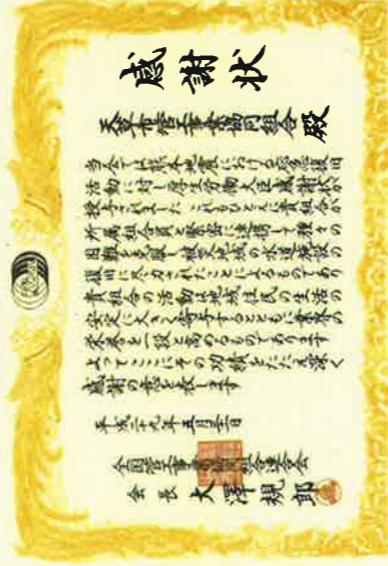 感謝状
天草市管工事業協同組合 殿
当会では熊本地震における応急復旧
活動に対し厚生労働大臣感謝状が
授与されました これもひとえに貴組合が
所属組合員と緊密に連携して種々の
困難を克服し被災地域の水道施設の
復旧に尽力されたことによるものであり
貴組合の活動は地域住民の生活の
安定に大きく寄与するとともに業界の
栄誉を一段と高めるものであります
よってここにその功績をたたえ深く
感謝の意を表します
平成二十九年五月
全国管工事業協同組合連合会
会長 大澤規郎